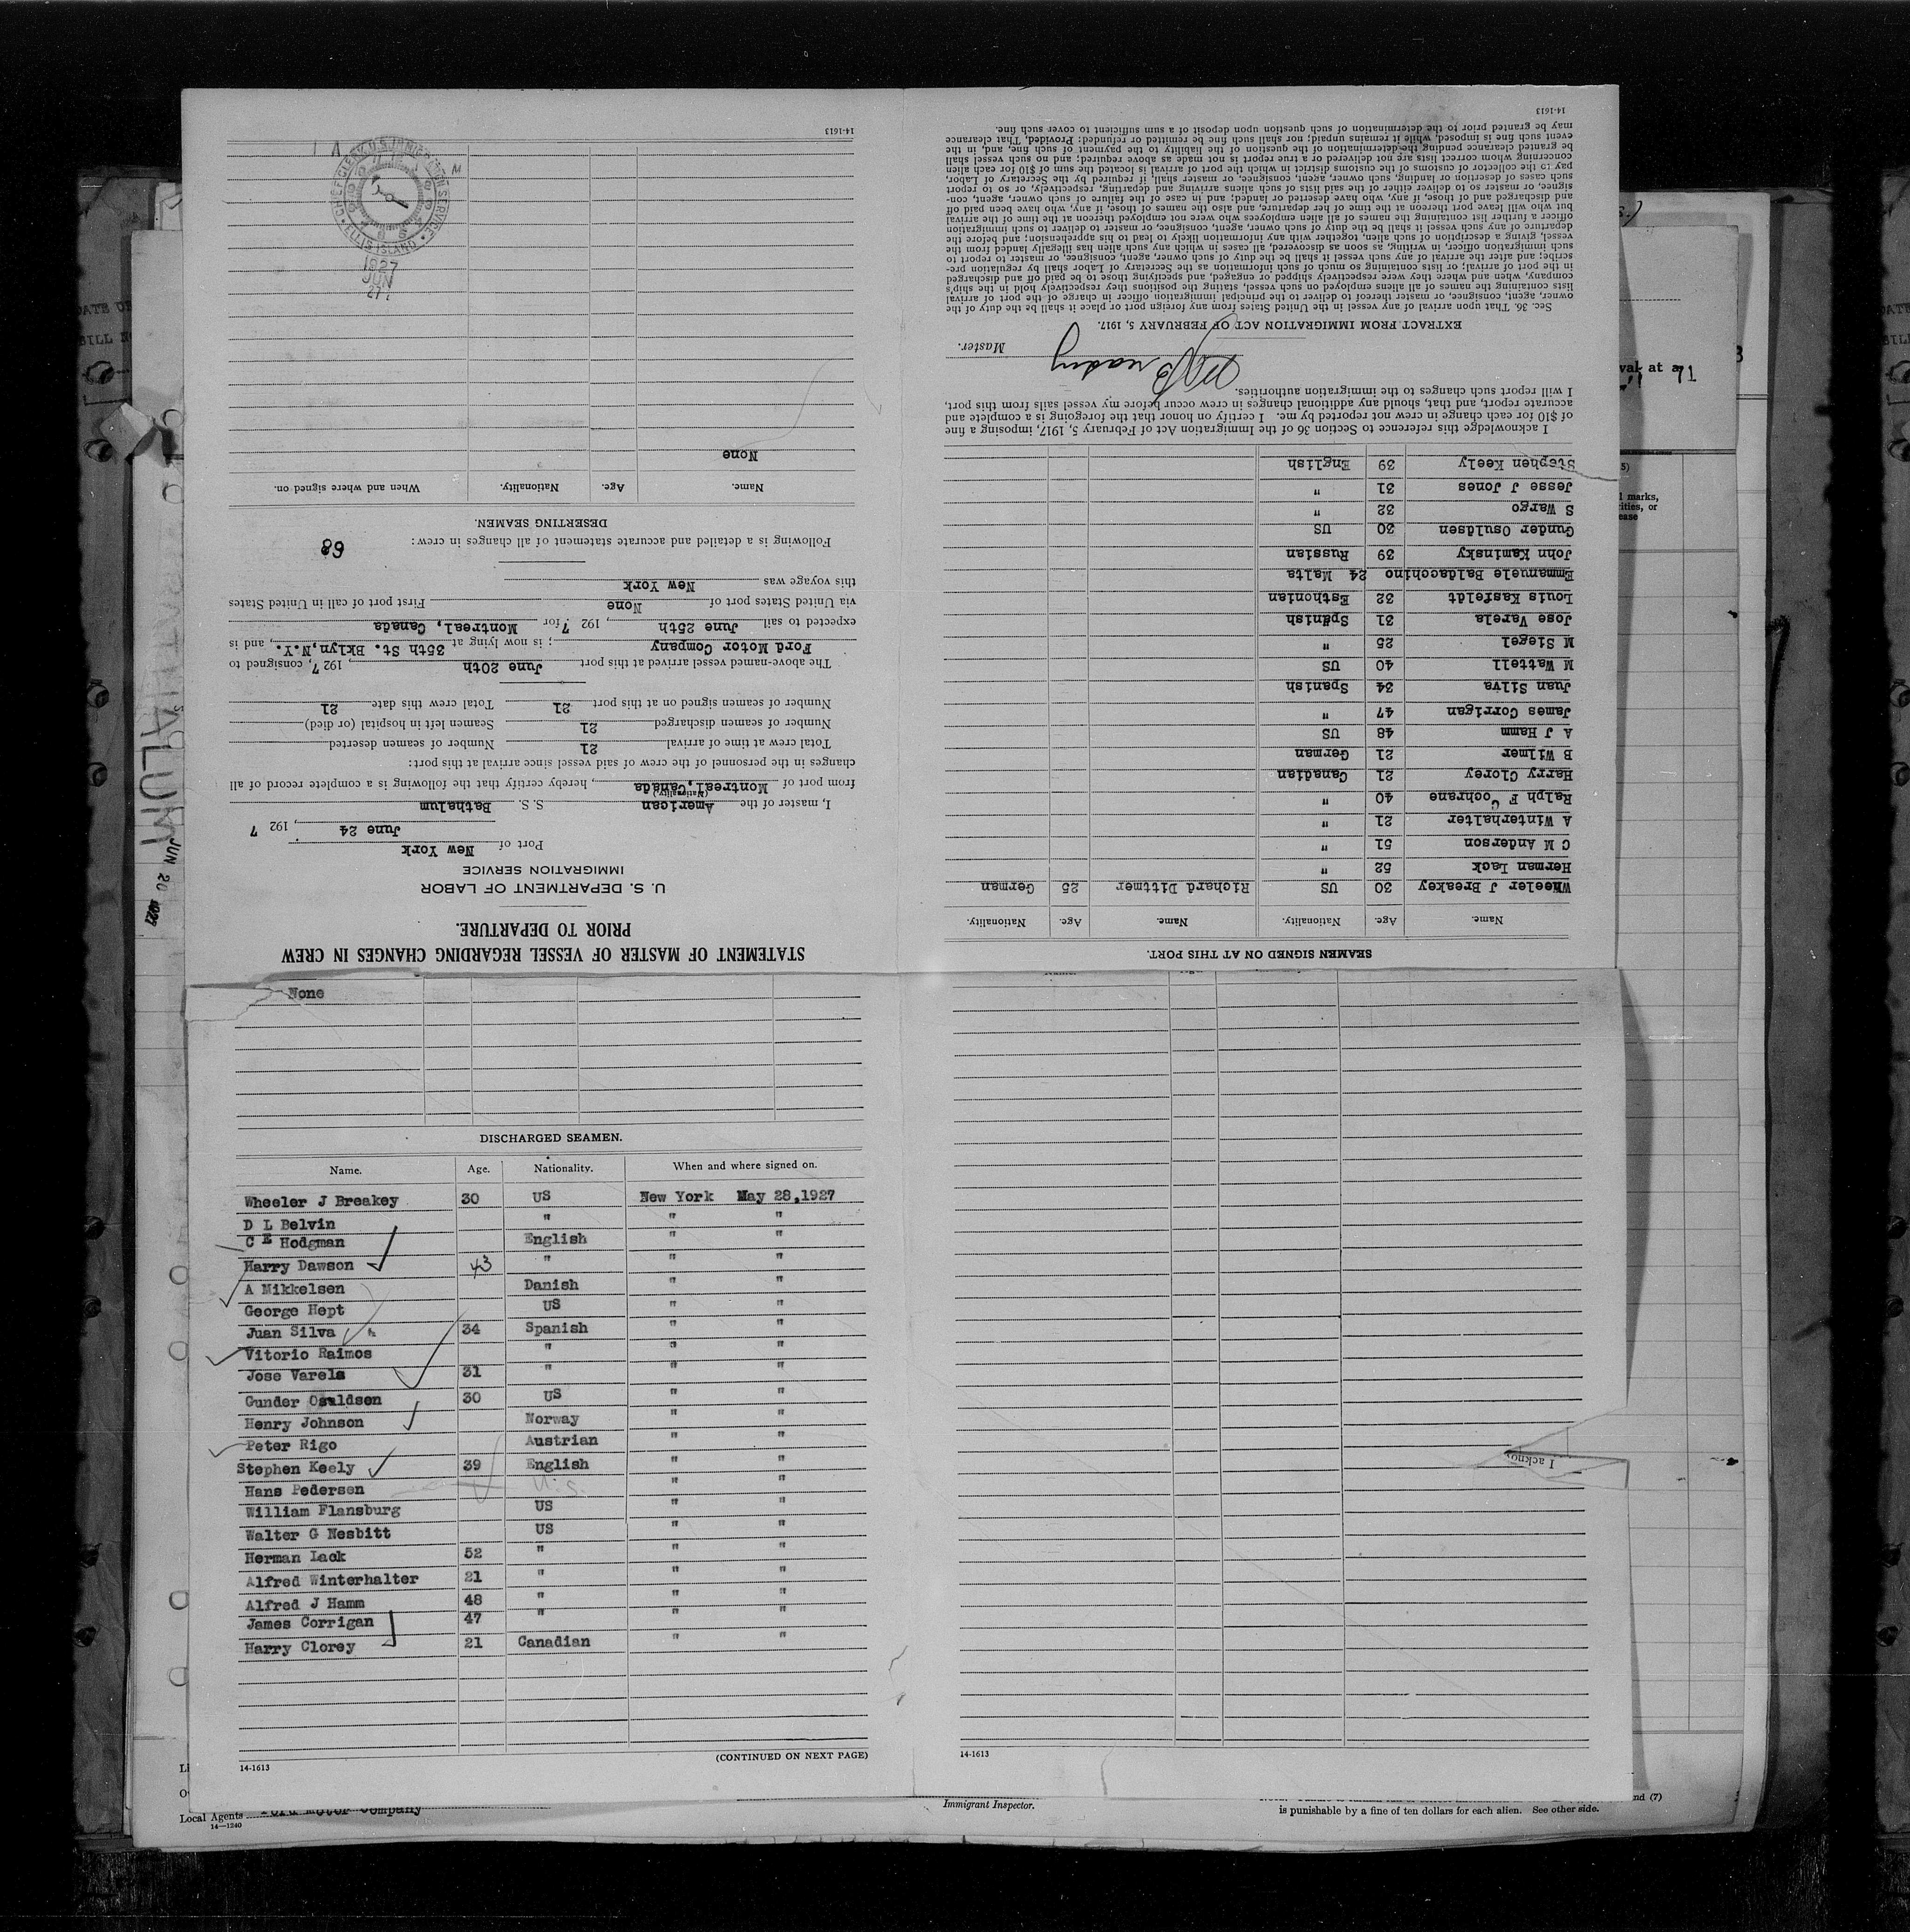 STATEMENT OF MASTER OF VESSEL REGARDING CHANGES IN CREW
PRIOR TO DEPARTURE.
U. S. DEPARTMENT OF LABOR
IMMIGRATION SERVICE
Port of New York
June 24, 192 7
I, master of the American S. S. Bathalum
(Nationality.)
from port of Montreal, Canada, hereby certify that the following is a complete record of all
changes in the personnel of the crew of said vessel since arrival at this port:
Total crew at time of arrival 21 Number of seamen deserted
Number of seamen discharged 21 Seamen left in hospital (or died)
Number of seamen signed on at this port 21 Total crew this date 21
The above-named vessel arrived at this port June 20th, 192 7, consigned to
Ford Motor Company; is now lying at 35th St. Bklyn, N.Y., and is
expected to sail June 25th, 192 7 for Montreal, Canada
via United States port of None First port of call in United States
this voyage was New York
Following is a detailed and accurate statement of all changes in crew:
68
DESERTING SEAMEN.
Name. Age. Nationality. When and where signed on.
None
CHIEF CLERK, U.S. IMMIGRATION SERVICE
ELLIS ISLAND
1927
JUN
27
14-1613
SEAMEN SIGNED ON AT THIS PORT.
Name. Age. Nationality. Name. Age. Nationality.
Wheeler J Breakey 30 US Richard Dittmer 25 German
Herman Lack 52 "
C M Anderson 51 "
A Winterhalter 21 "
Ralph F Cochrane 40 "
Harry Clorey 21 Canadian
B Wilmer 21 German
A J Hamm 48 US
James Corrigan 47 "
Juan Silva 34 Spanish
M Wattell 40 US
M Siegel 25 "
Jose Varela 31 Spanish
Louis Kasfeldt 32 Esthonian
Emmanuele Baldacchino 24 Malta
John Kaminsky 39 Russian
Gunder Osuldsen 30 US
S Wargo 32 "
Jesse J Jones 31 "
Stephen Keely 39 English
I acknowledge this reference to Section 36 of the Immigration Act of February 5, 1917, imposing a fine
of $10 for each change in crew not reported by me. I certify on honor that the foregoing is a complete and
accurate report, and that, should any additional changes in crew occur before my vessel sails from this port,
I will report such changes to the immigration authorities.
Breakey
Master.
EXTRACT FROM IMMIGRATION ACT OF FEBRUARY 5, 1917.
Sec. 36. That upon arrival of any vessel in the United States from any foreign port or place it shall be the duty of the
owner, agent, consignee, or master thereof to deliver to the principal immigration officer in charge of the port of arrival
lists containing the names of all aliens employed on such vessel, stating the positions they respectively hold in the ship's
company, when and where they were respectively shipped or engaged, and specifying those to be paid off and discharged
in the port of arrival; or lists containing so much of such information as the Secretary of Labor shall by regulation pre-
scribe; and after the arrival of any such vessel it shall be the duty of such owner, agent, consignee, or master to report to
such immigration officer, in writing, as soon as discovered, all cases in which any such alien has illegally landed from the
vessel, giving a description of such alien, together with any information likely to lead to his apprehension; and before the
departure of any such vessel it shall be the duty of such owner, agent, consignee, or master to deliver to such immigration
officer a further list containing the names of all alien employees who were not employed thereon at the time of the arrival
but who will leave port thereon at the time of her departure, and also the names of those, if any, who have been paid off
and discharged and of those, if any, who have deserted or landed; and in case of the failure of such owner, agent, con-
signee, or master so to deliver either of the said lists of such aliens arriving and departing, respectively, or so to report
such cases of desertion or landing, such owner, agent, consignee, or master shall, if required by the Secretary of Labor,
pay to the collector of customs of the customs district in which the port of arrival is located the sum of $10 for each alien
concerning whom correct lists are not delivered or a true report is not made as above required; and no such vessel shall
be granted clearance pending the determination of the question of the liability to the payment of such fine, and, in the
event such fine is imposed, while it remains unpaid; nor shall such fine be remitted or refunded: Provided, That clearance
may be granted prior to the determination of such question upon deposit of a sum sufficient to cover such fine.
14-1613
None
DISCHARGED SEAMEN.
Name. Age. Nationality. When and where signed on.
Wheeler J Breakey 30 US New York May 28,1927
D L Belvin " " "
C E Hodgman English " "
Harry Dawson 43 " " "
A Mikkelsen Danish " "
George Hept US " "
Juan Silva 34 Spanish " "
Vitorio Raimos " " "
Jose Varela 31 " " "
Gunder Osuldsen 30 US " "
Henry Johnson Norway " "
Peter Rigo Austrian " "
Stephen Keely 39 English " "
Hans Pedersen U.S. " "
William Flansburg US " "
Walter G Nesbitt US " "
Herman Lack 52 " " "
Alfred Winterhalter 21 " " "
Alfred J Hamm 48 " " "
James Corrigan 47 " " "
Harry Clorey 21 Canadian " "
(CONTINUED ON NEXT PAGE)
14-1613
14-1613
I acknow
JUN 20 1927
Local Agents Ford Motor Company
14-1240
Immigrant Inspector.
is punishable by a fine of ten dollars for each alien. See other side.